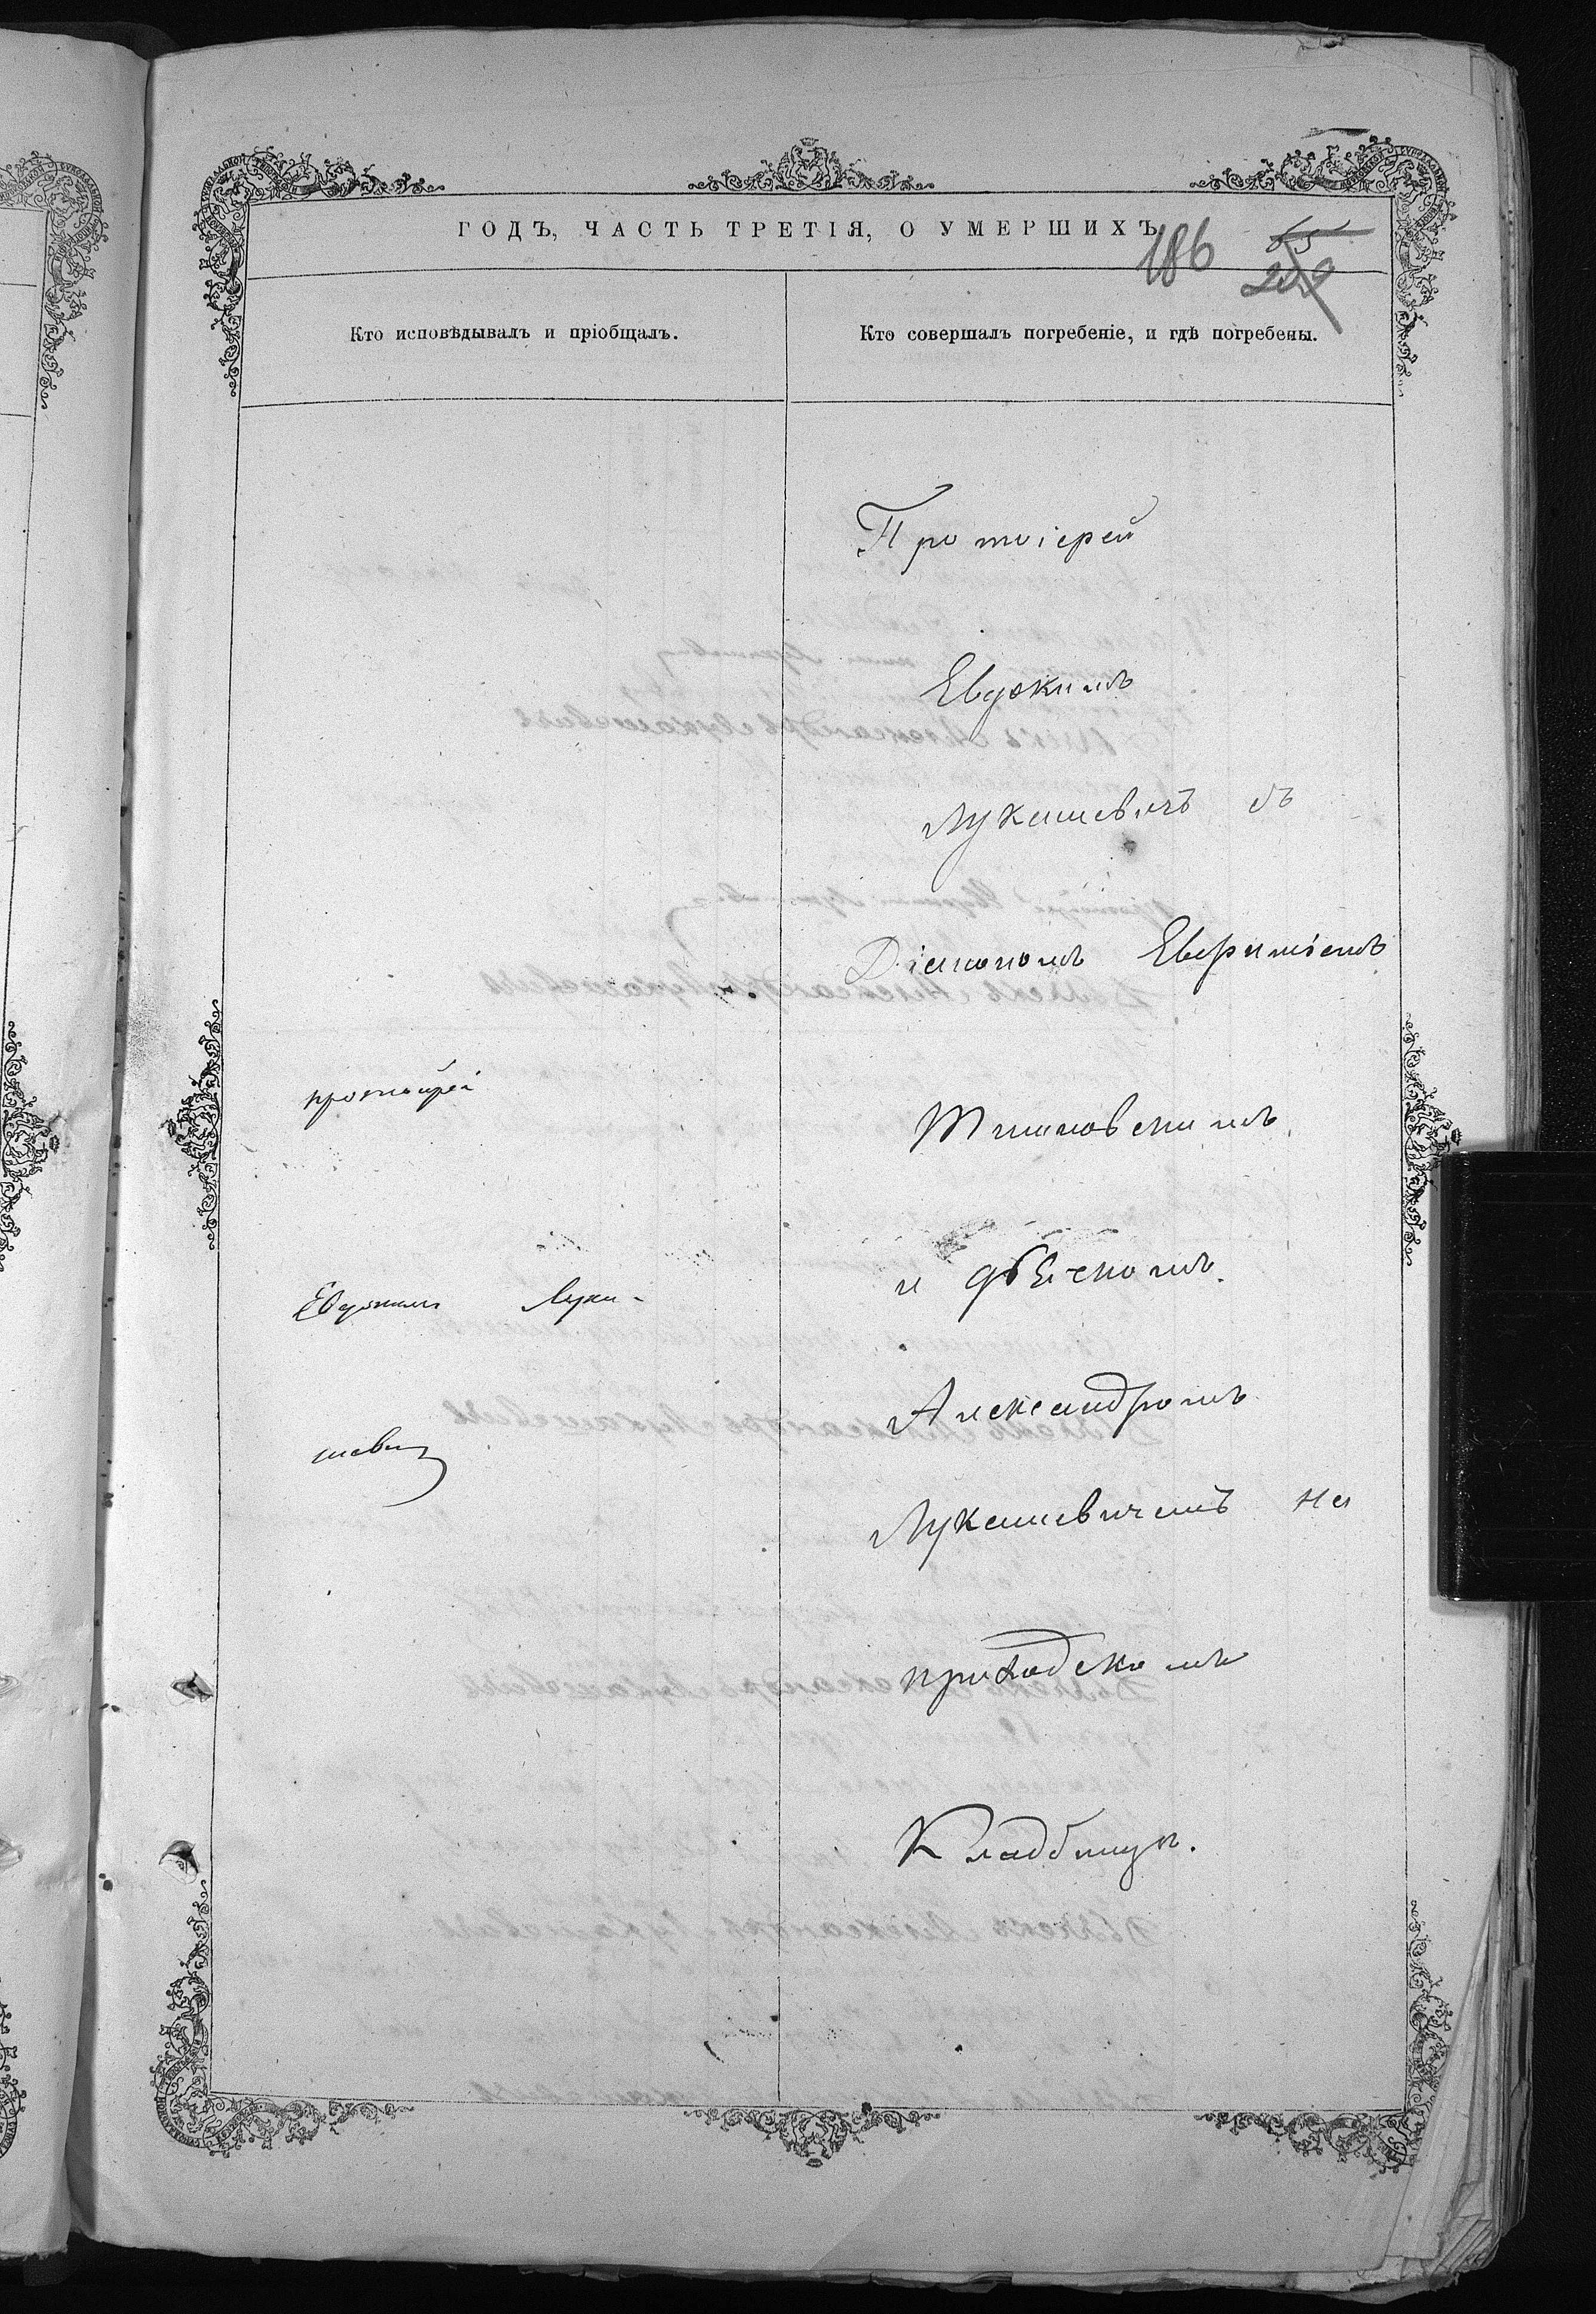 ГОДЪ, ЧАСТЬ ТРЕТІЯ, О УМЕРШИХЪ
186
65
209
Кто исповѣдывалъ и пріобщалъ.
Кто совершалъ погребеніе, и гдѣ погребены.
протоіерей
Евдокимъ Лука-
шевич
Протоіерей
Евдокимъ
Лукашевичъ съ
Діакономъ Евфиміемъ
и дьячкомъ
Александромъ
Лукашевичемъ на
приходскомъ
Кладбищѣ.